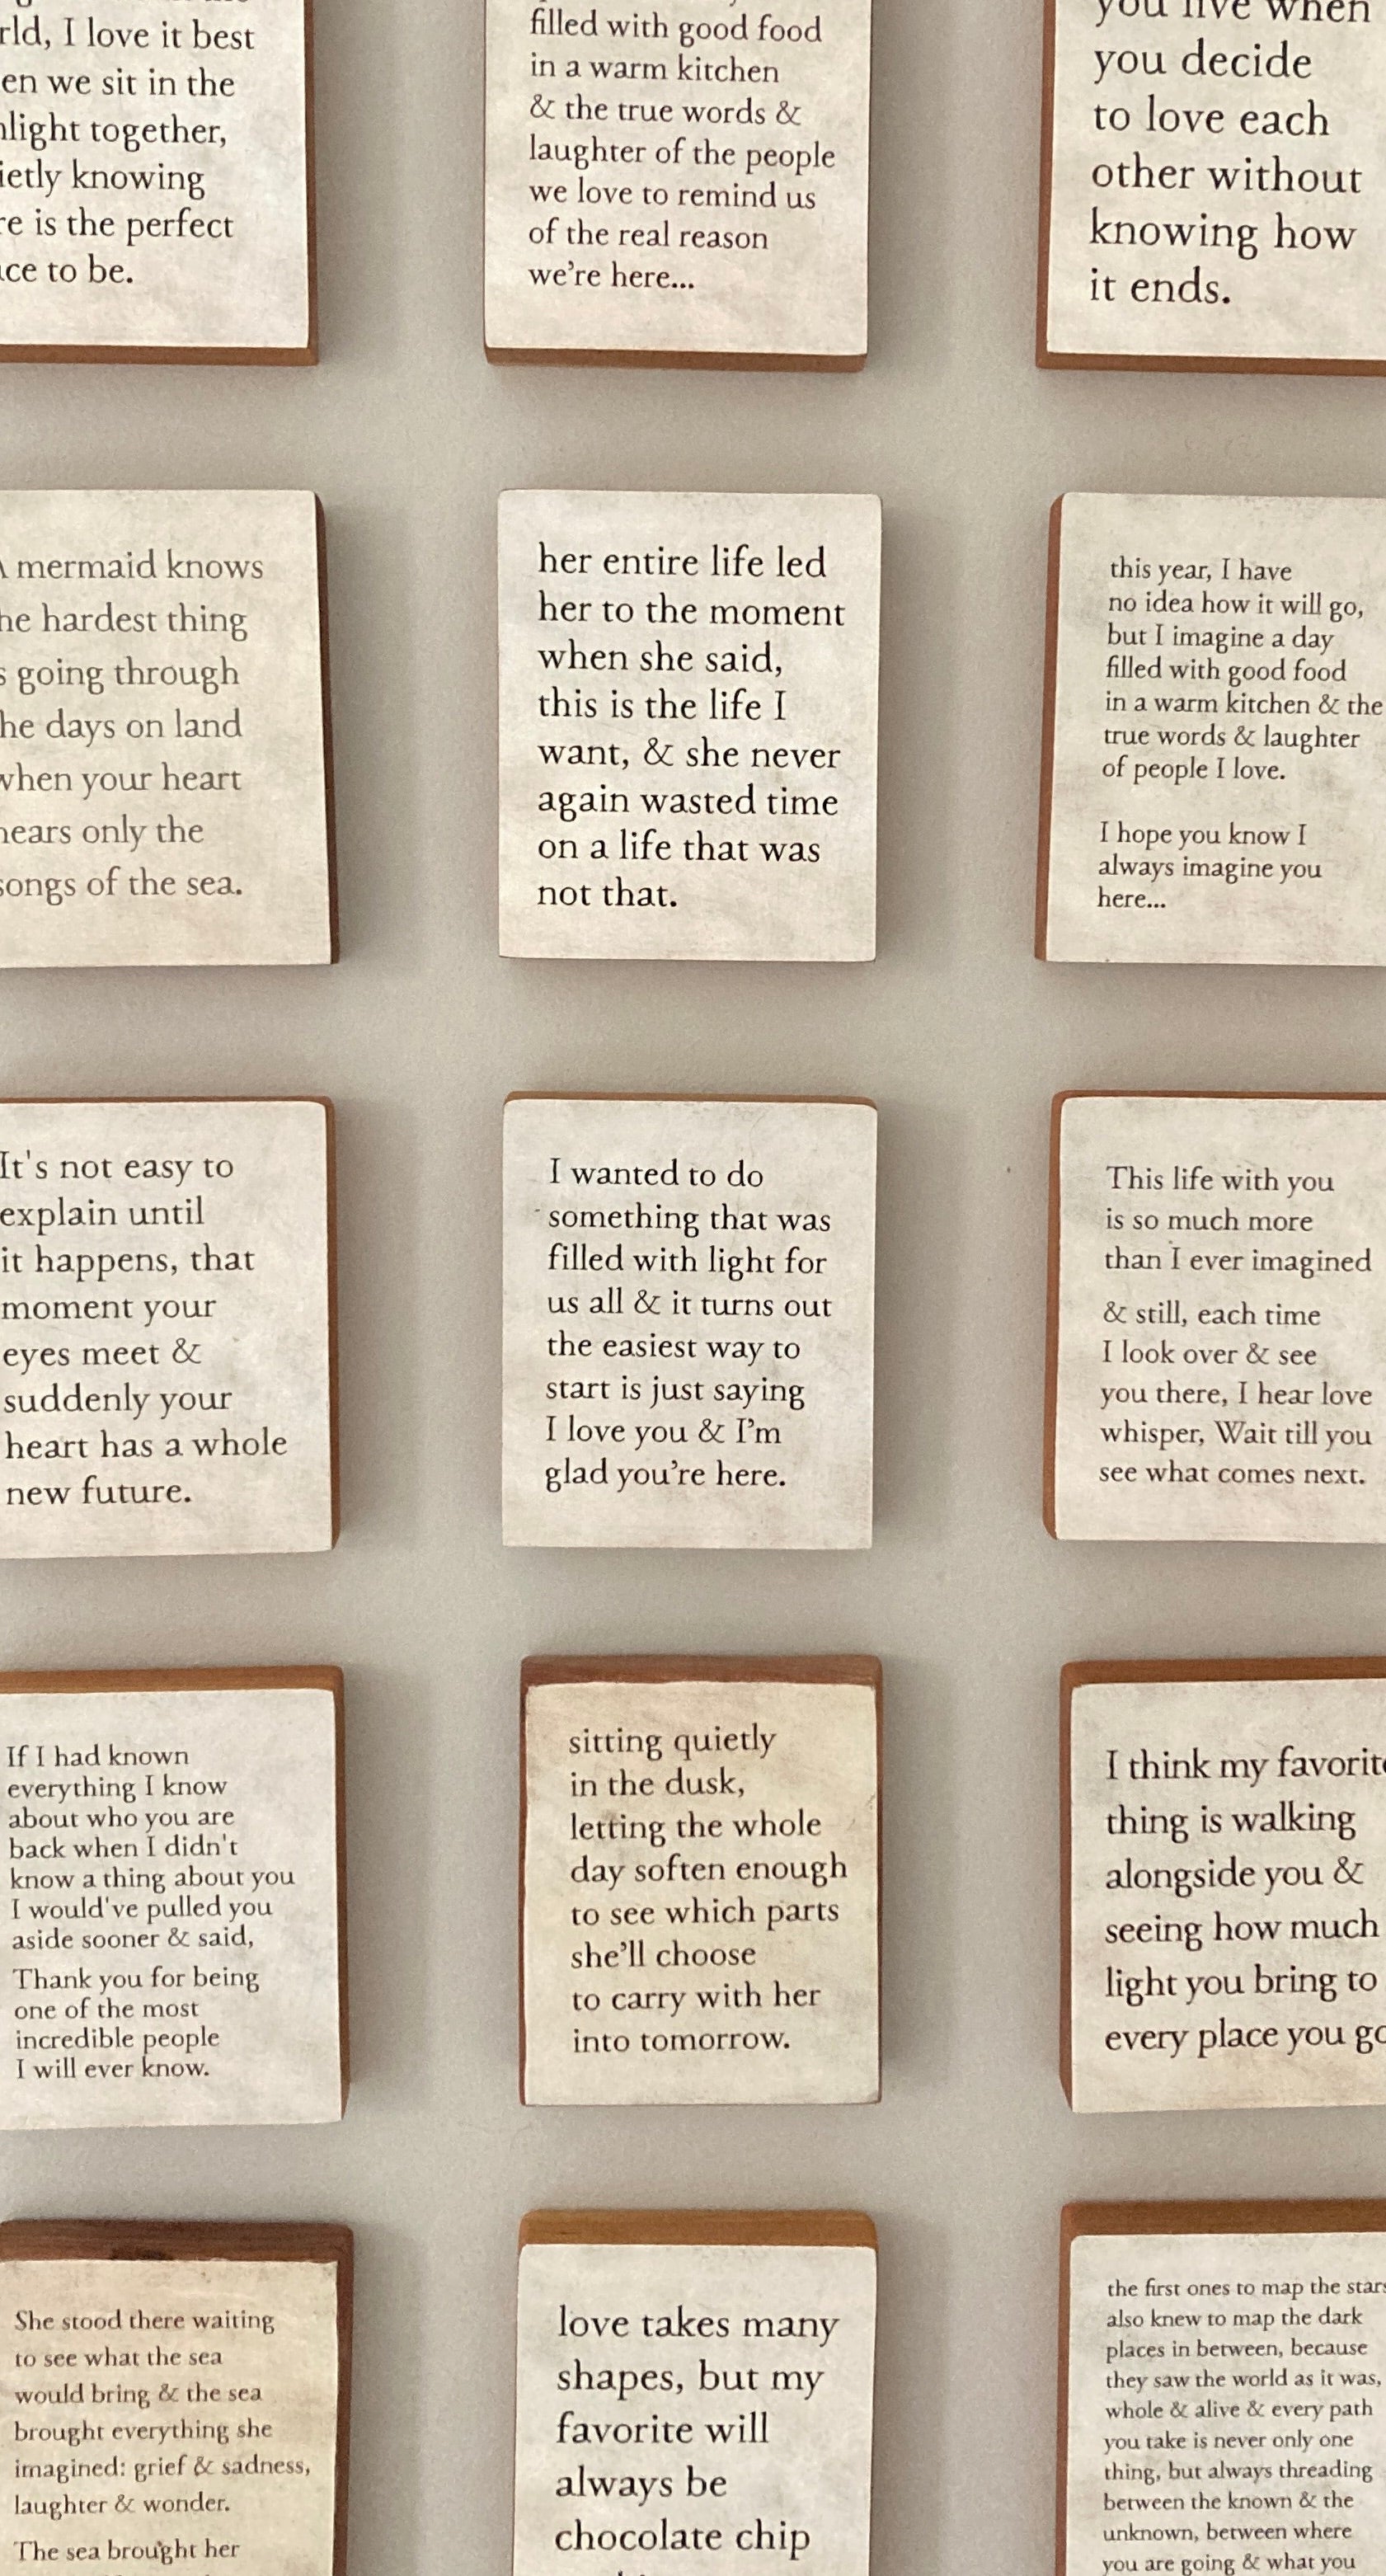 I love it best
we sit in the
together,
knowing
is the perfect
to be.
filled with good food
in a warm kitchen
& the true words &
laughter of the people
we love to remind us
of the real reason
we're here...
you live when
you decide
to love each
other without
knowing how
it ends.
mermaid knows
hardest thing
going through
days on land
when your heart
hears only the
songs of the sea.
her entire life led
her to the moment
when she said,
this is the life I
want, & she never
again wasted time
on a life that was
not that.
this year, I have
no idea how it will go,
but I imagine a day
filled with good food
in a warm kitchen & the
true words & laughter
of people I love.
I hope you know I
always imagine you
here...
It's not easy to
explain until
it happens, that
moment your
eyes meet &
suddenly your
heart has a whole
new future.
I wanted to do
something that was
filled with light for
us all & it turns out
the easiest way to
start is just saying
I love you & I'm
glad you're here.
This life with you
is so much more
than I ever imagined
& still, each time
I look over & see
you there, I hear love
whisper, Wait till you
see what comes next.
If I had known
everything I know
about who you are
back when I didn't
know a thing about you
I would've pulled you
aside sooner & said,
Thank you for being
one of the most
incredible people
I will ever know.
sitting quietly
in the dusk,
letting the whole
day soften enough
to see which parts
she'll choose
to carry with her
into tomorrow.
I think my favorite
thing is walking
alongside you &
seeing how much
light you bring to
every place you go
She stood there waiting
to see what the sea
would bring & the sea
brought everything she
imagined: grief & sadness,
laughter & wonder.
The sea brought her
love takes many
shapes, but my
favorite will
always be
chocolate chip
the first ones to map the stars
also knew to map the dark
places in between, because
they saw the world as it was,
whole & alive & every path
you take is never only one
thing, but always threading
between the known & the
unknown, between where
you are going & what you